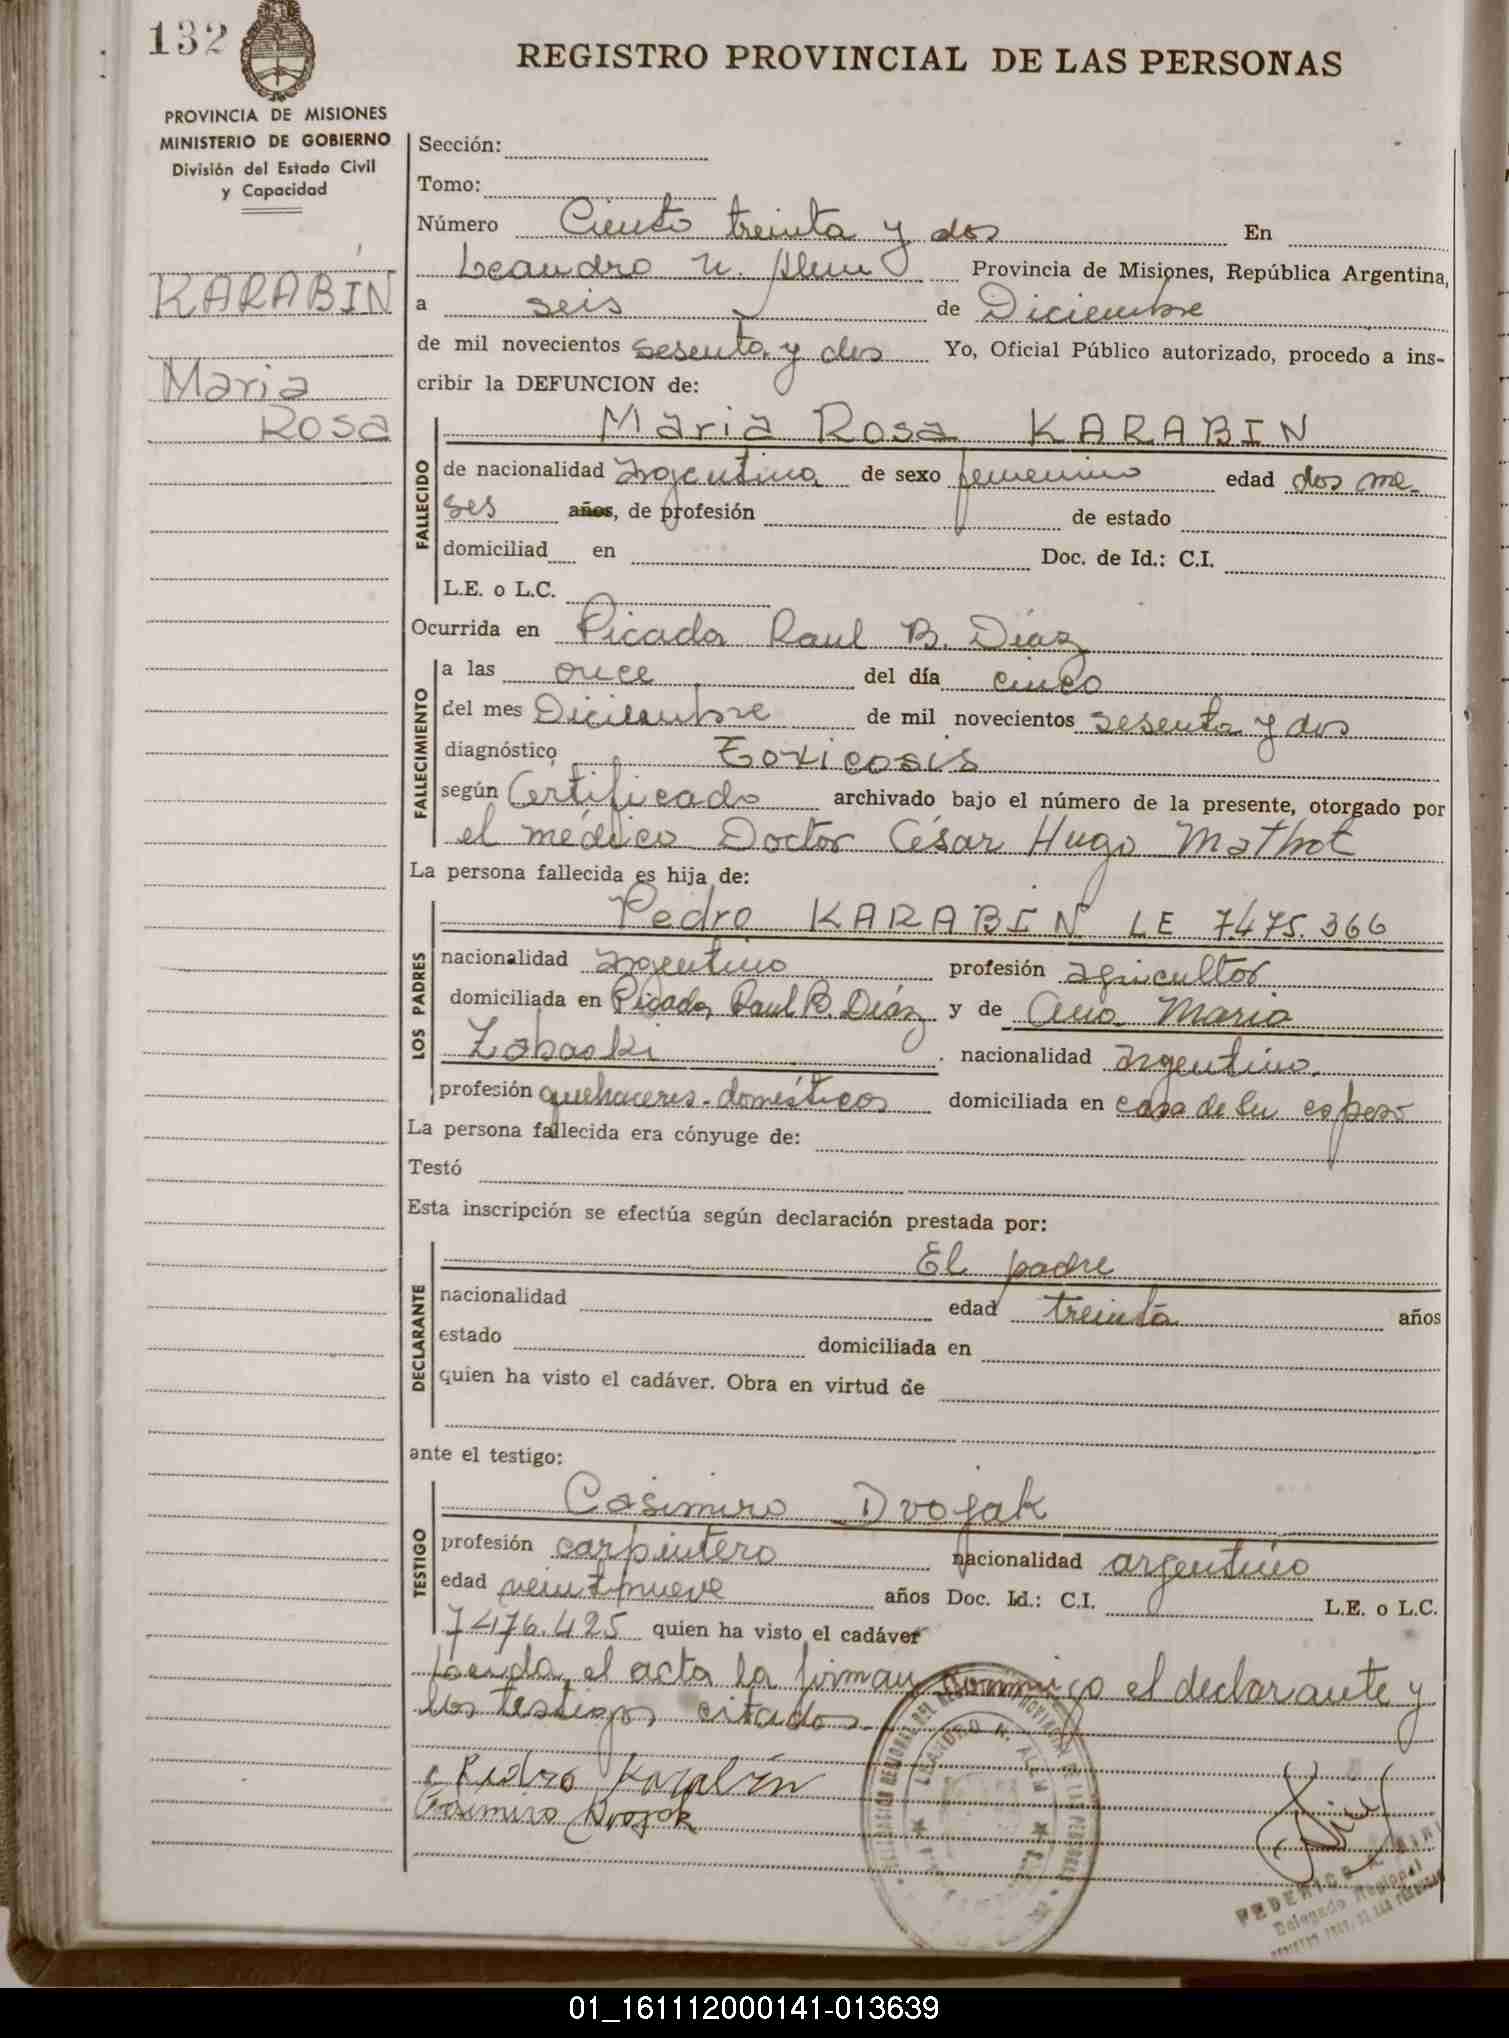 132
REGISTRO PROVINCIAL DE LAS PERSONAS
PROVINCIA DE MISIONES
MINISTERIO DE GOBIERNO
División del Estado Civil
y Capacidad
KARABIN
Maria
Rosa
Sección:
Tomo:
Número Ciento treinta y dos En
Leandro N. Alem Provincia de Misiones, República Argentina,
a seis de Diciembre
de mil novecientos sesenta y dos Yo, Oficial Público autorizado, procedo a ins-
cribir la DEFUNCION de:
FALLECIDO
Maria Rosa KARABIN
de nacionalidad Argentina de sexo femenino edad dos me-
ses años, de profesión de estado
domiciliad en Doc. de Id.: C.I.
L.E. o L.C.
Ocurrida en Picada Raul B. Díaz
FALLECIMIENTO
a las once del día cinco
del mes Diciembre de mil novecientos sesenta y dos
diagnóstico Toxicosis
según Certificado archivado bajo el número de la presente, otorgado por
el médico Doctor César Hugo Mathot
La persona fallecida es hija de:
LOS PADRES
Pedro KARABIN LE 7.475.366
nacionalidad Argentino profesión agricultor
domiciliada en Picada Raul B. Díaz y de Ana Maria
Zabaski . nacionalidad Argentino.
profesión quehaceres-domésticos domiciliada en casa de su esposo
La persona fallecida era cónyuge de:
Testó
Esta inscripción se efectúa según declaración prestada por:
DECLARANTE
El padre
nacionalidad edad treinta años
estado domiciliada en
quien ha visto el cadáver. Obra en virtud de
ante el testigo:
TESTIGO
Casimiro Dvojak
profesión carpintero nacionalidad argentino
edad veintinueve años Doc. Id.: C.I. L.E. o L.C.
7476.425 quien ha visto el cadáver
Leenda el acta la firman conmigo el declarante y
los testigos citados.
Pedro Karabin
Casimiro Dvojak
LEANDRO N. ALEM
FEDERICO
Delegado Regional
01_161112000141-013639